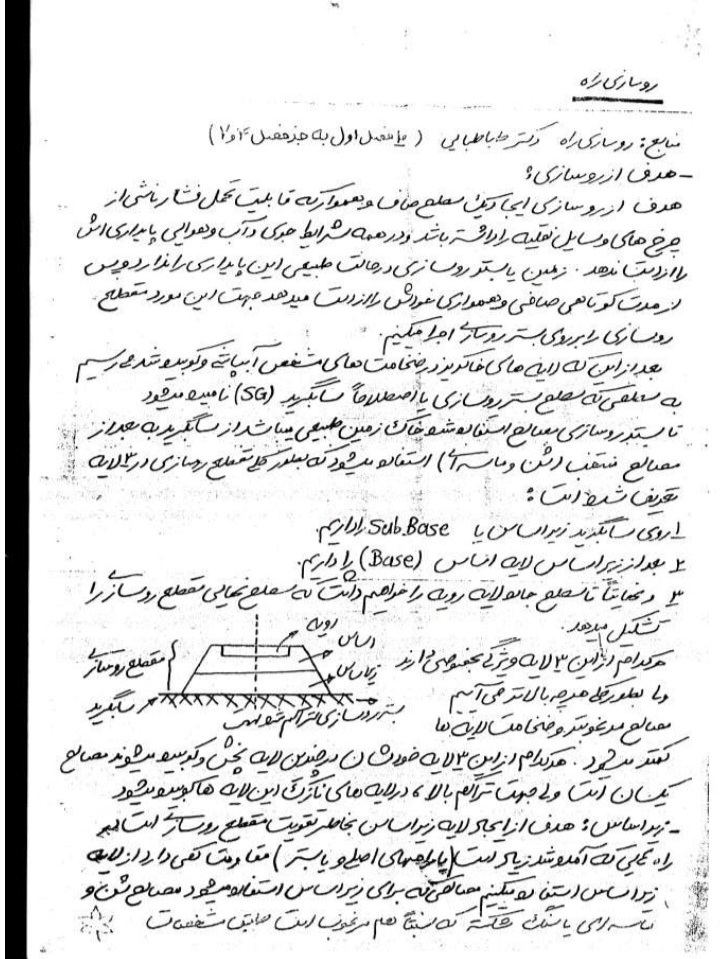 روسازی راه
منابع: روسازی راه دکتر طباطبایی (۱۰ فصل اول به جز فصل ۴ و ۷)
- هدف از روسازی:
هدف از روسازی ایجاد یک سطح صاف و هموار که قابلیت تحمل فشار ناشی از
چرخ های وسایل نقلیه را داشته باشد و در همه شرایط جوی و آب و هوایی پایداری اش
را از دست ندهد. زمین یا بستر روسازی در حالت طبیعی این پایداری را ندارد و پس
از مدت کوتاهی صافی و همواری خودش را از دست میدهد جهت این مورد مقطع
روسازی را بر روی بستر روسازی اجرا میکنیم.
بعد از این که لایه های خاکریز در ضخامت های مشخص آبپاشی و کوبیده شد می رسیم
به سطحی که سطح بستر روسازی یا اصطلاحاً سابگرید (SG) نامیده میشود
تا بستر روسازی مصالح استفاده شده خاک زمین طبیعی میباشد از سابگرید به بعد از
مصالح منتخب (شن و ماسه ای) استفاده میشود که بطور کلی مقطع روسازی در ۳ لایه
تعریف شده است:
۱ روی سابگرید زیراساس یا Sub.Base را داریم.
۲ بعد از زیراساس لایه اساس (Base) را داریم.
۳ و نهایتاً تا سطح جاده لایه رویه را خواهیم داشت که سطح نهایی مقطع روسازی را
تشکیل میدهد.
هر کدام از این ۳ لایه ویژگی مخصوص دارند
ولی بطور کلی هر چه بالاتر می آییم
مصالح مرغوبتر و ضخامت لایه ها
رویه
اساس
زیراساس
مقطع روسازی
سابگرید
بستر روسازی متراکم شده
کمتر میشود. هر کدام از این ۳ لایه خودشان در چندین لایه پخش و کوبیده میشوند مصالح
یکسان است ولی جهت تراکم بالا، در لایه های نازک این لایه ها کوبیده میشود
- زیراساس: هدف از ایجاد لایه زیراساس بخاطر تقویت مقطع روسازی است
راه هایی که آمد و شد زیاد است (یا راههای اصلی و یا بستر) مقاومت کمی دارد از لایه
زیراساس استفاده میکنیم مصالحی که برای زیراساس استفاده میشود مصالح شن و
ماسه ای یا سنگ شکسته که نسبتاً هم مرغوب است طبق مشخصات